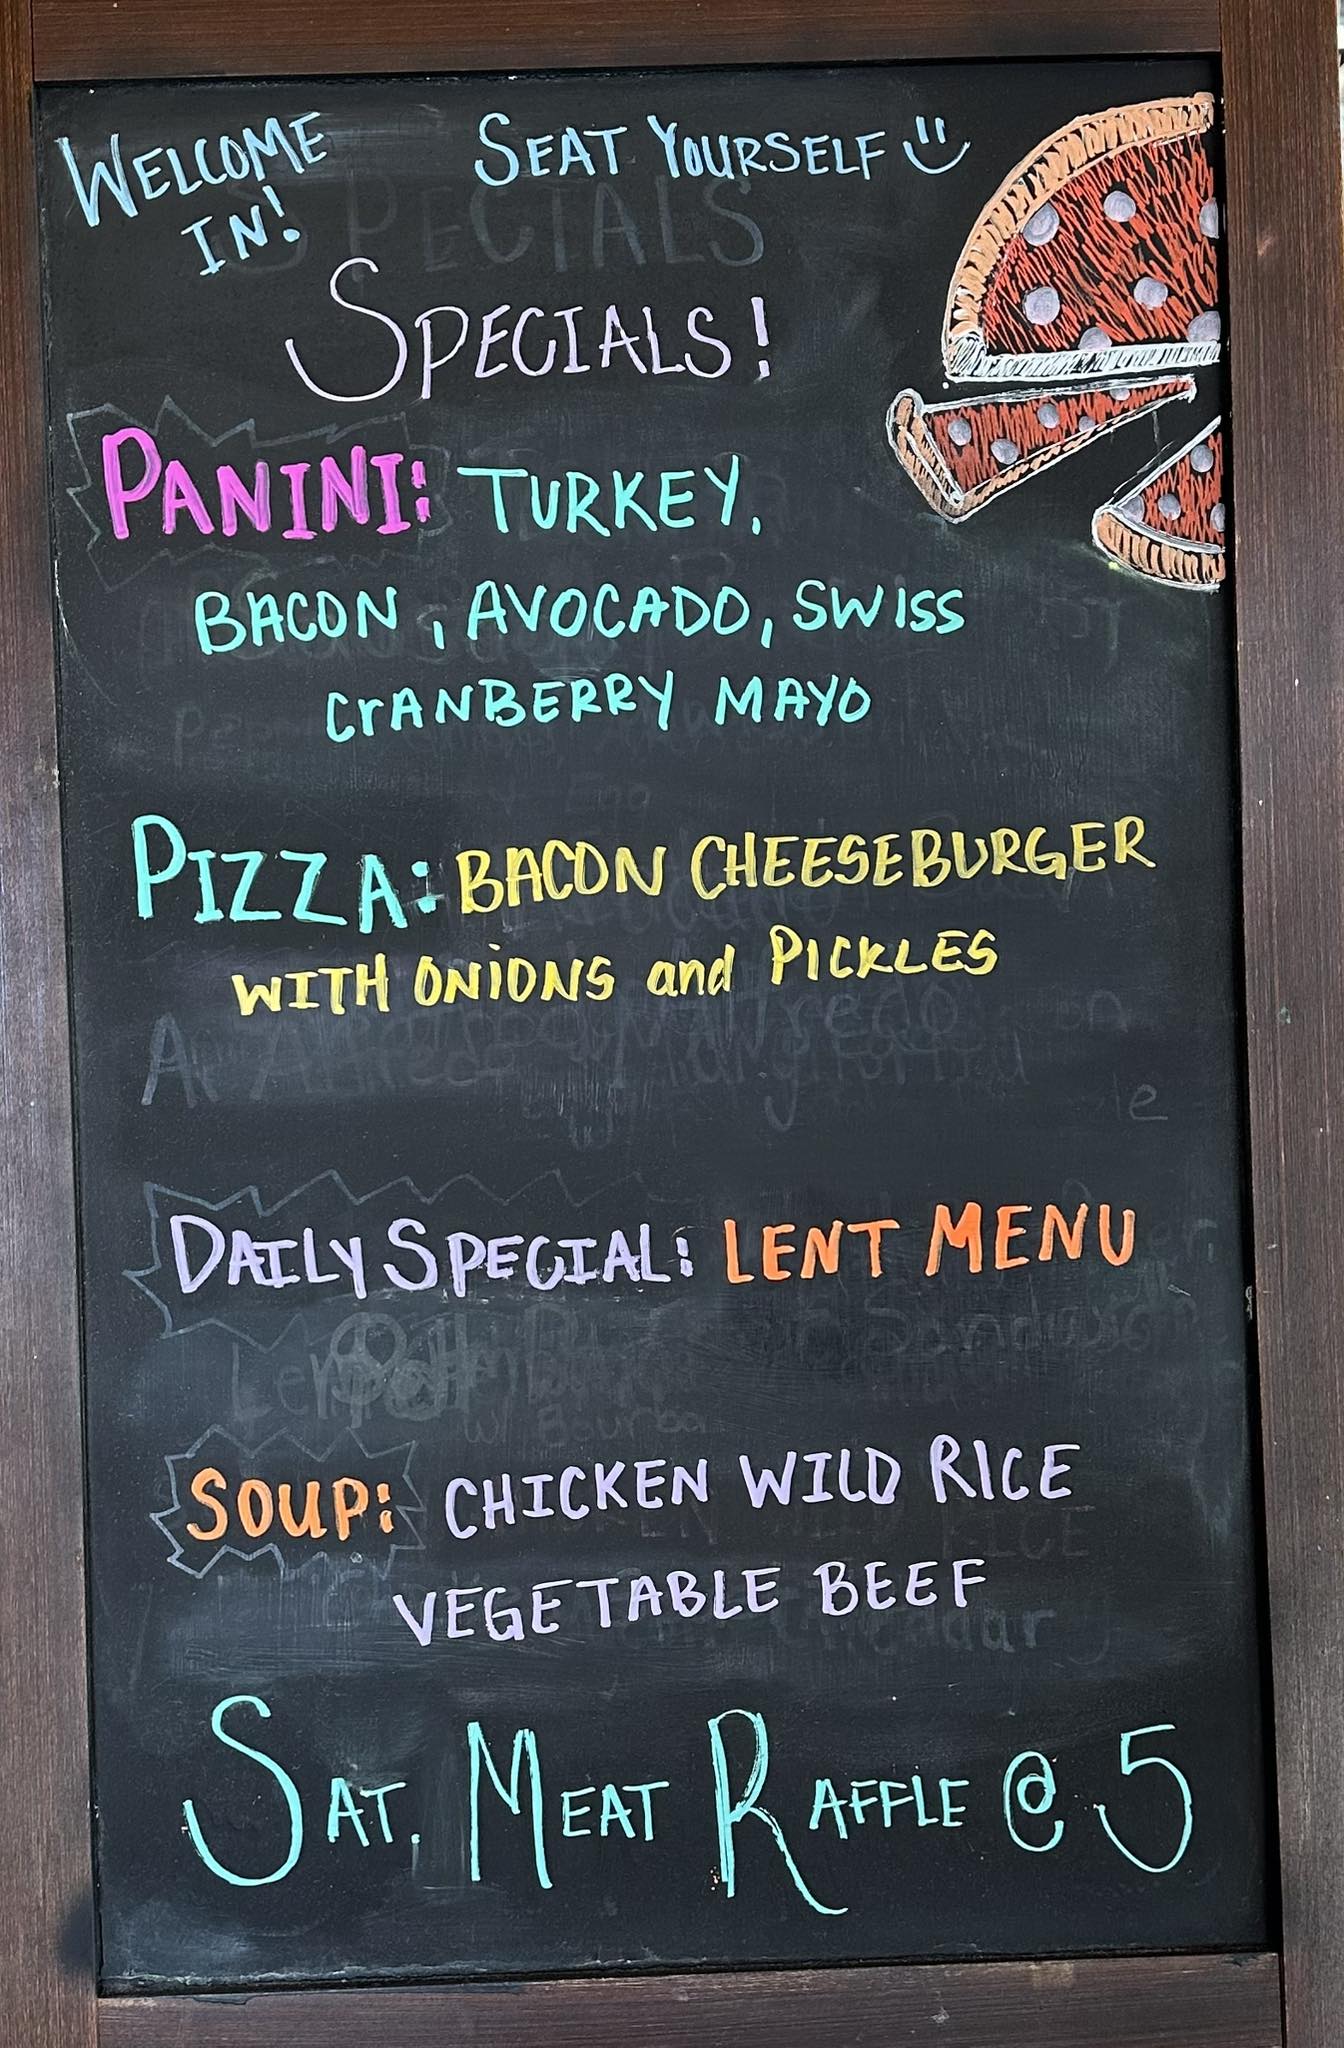 WELCOME IN!
SEAT YOURSELF
SPECIALS
SPECIALS!
PANINI: TURKEY,
BACON, AVOCADO, SWISS
CrANBERRY MAYO
PIZZA: BACON CHEESEBURGER
WITH ONiONS and PICKLES
DAILY SPECIAL: LENT MENU
SOUP: CHICKEN WILD RICE
VEGETABLE BEEF
SAT. MEAT RAFFLE @ 5